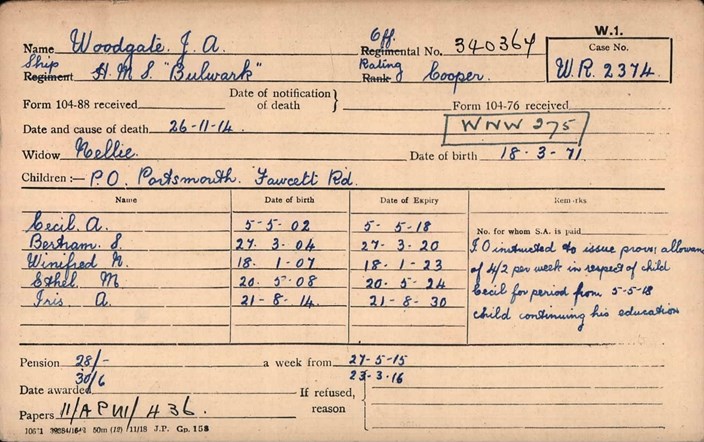 W.1.
Name Woodgate. J. A. Off. Regimental No. 340364 Case No.
Ship Regiment H.M.S. "Bulwark" Rating Rank Cooper. W.R. 2374.
Form 104-88 received Date of notification of death } Form 104-76 received
Date and cause of death 26-11-14. WNW 275
Widow Nellie. Date of birth 18-3-71
Children :— P.O. Portsmouth. Fawcett Rd.
Name Date of birth Date of Expiry Remarks
Cecil. A. 5-5-02 5-5-18 No. for whom S.A. is paid
Bertram. S. 27.3.04 27-3-20 I.O instructed to issue
Winifred N. 18.1-07 18.1-23 of 4/2 per week in respect of child
Ethel. M. 20.5-08 20.5-24 Cecil for period from 5-5-18
Iris A. 21-8-14. 21-8-30 child continuing his education
Pension 28/- a week from 27-5-15
30/6 23-3-16
Date awarded If refused, reason
Papers 11/AP VII/436.
50m (12) 11/18 J.P. Gp. 158